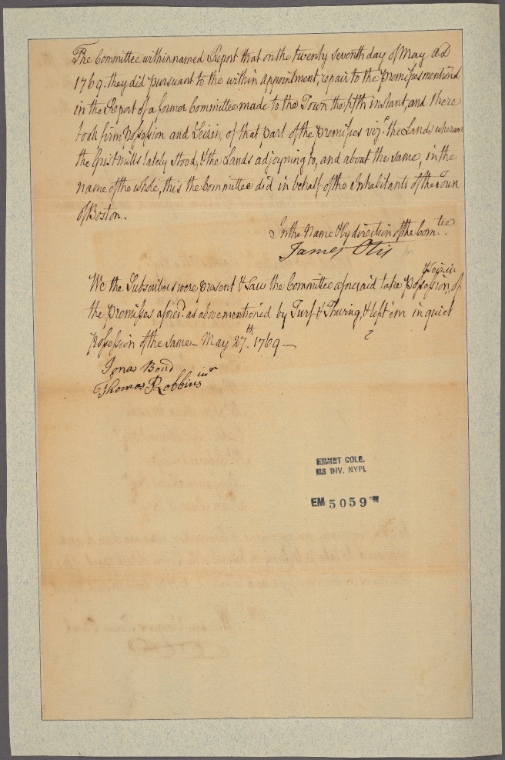 The Committee within named Report that on the twenty seventh day of May AD
1769. they did pursuant to the within appointment, repair to the Premises mentioned
in the Report of a former Committee made to the Town the fifth instant, and there
took firm Possession and Seizin, of that part of the Premises vizt. the Lands whereon
the Grist mills lately stood, & the Lands adjoyning to, and about the same, in the
name of the whole, this the Committee did in behalf of the Inhabitants of the Town
of Boston.
In the Name & by direction of the Comtee.
James Otis
We the Subscribers were present & Saw the Committee aforesaid take Possession & Seizin of
the Premises aforesd. as above mentioned by Turf & & left 'em in quiet
Possession of the same May 27th. 1769.
Jonas Bond
Thomas Robbins junr
EMMET COLL.
MS DIV. NYPL
EM 5059